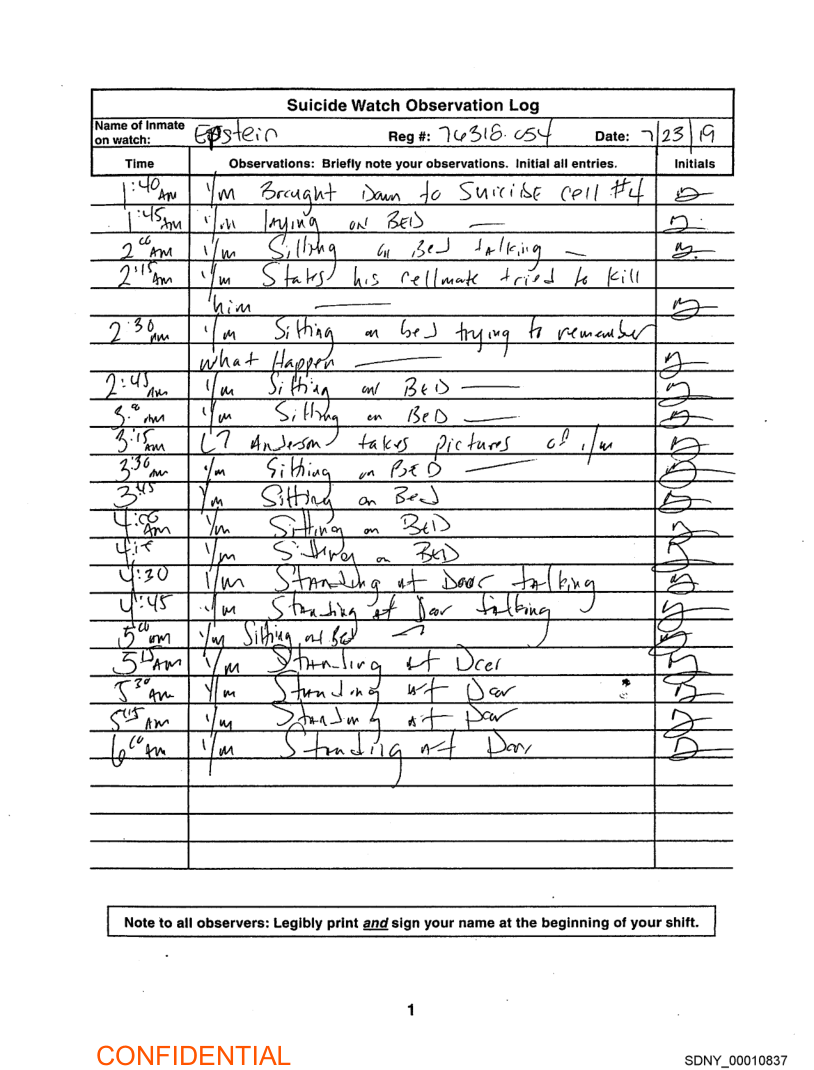 Suicide Watch Observation Log
Name of Inmate on watch: Epstein Reg #: 76318-054 Date: 7/23/19
Time Observations: Briefly note your observations. Initial all entries. Initials
1:40 AM I/m Brought Down to SUICIDE CELL #4
1:45 AM I/m laying on BED
2:00 AM I/m Sitting on Bed talking
2:15 AM I/m States his cellmate tried to kill
him
2:30 AM I/m Sitting on bed trying to remember
what Happen
2:45 AM I/m Sitting on BED
3:00 AM I/m Sitting on BED
3:15 AM LT Anderson takes pictures of I/m
3:30 AM I/m Sitting on BED
3:45 I/m Sitting on Bed
4:00 AM I/m Sitting on BED
I/m Sitting on BED
4:30 I/m Standing at Door talking
4:45 I/m Standing at Door talking
5:00 AM I/m Sitting on Bed
5:15 AM I/m Standing at Door
5:30 AM I/m Standing at Door
AM I/m Standing at Door
6:00 AM I/m Standing at Door
Note to all observers: Legibly print and sign your name at the beginning of your shift.
1
CONFIDENTIAL
SDNY_00010837